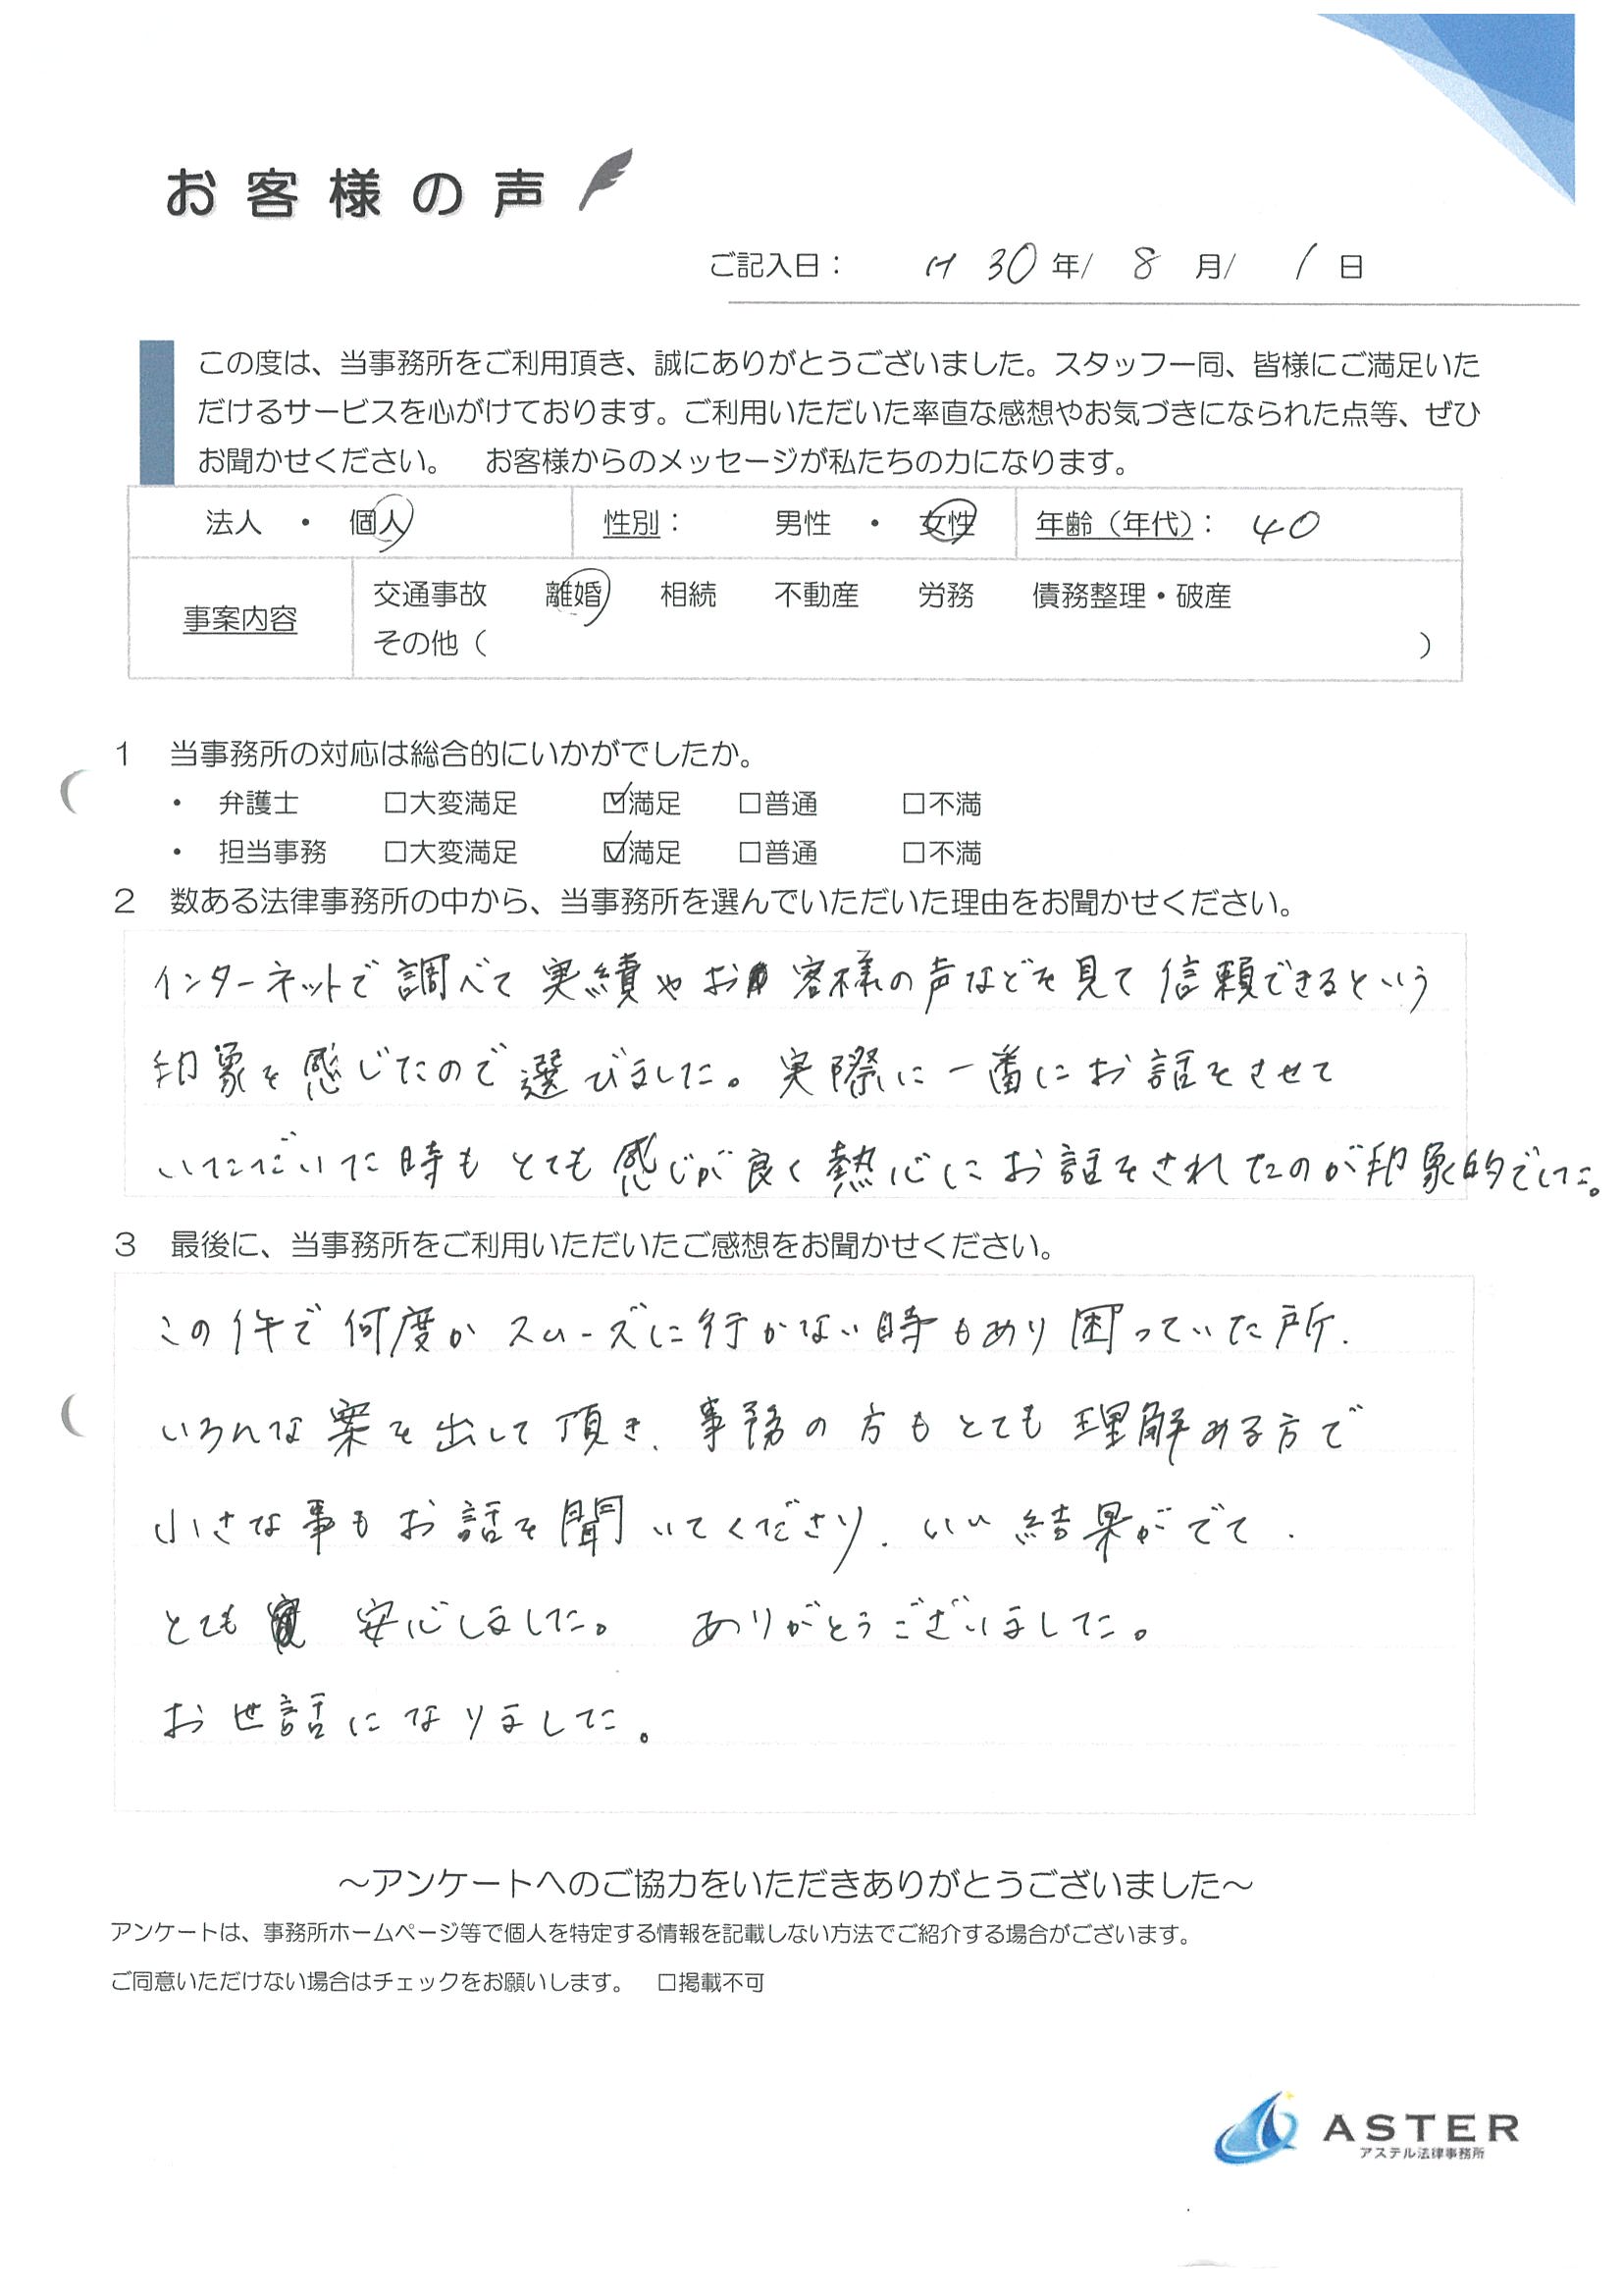 お客様の声
ご記入日： H 30 年/ 8 月/ 1 日
この度は、当事務所をご利用頂き、誠にありがとうございました。スタッフ一同、皆様にご満足いた
だけるサービスを心がけております。ご利用いただいた率直な感想やお気づきになられた点等、ぜひ
お聞かせください。　お客様からのメッセージが私たちの力になります。
法人 ・ 個人　性別： 男性 ・ 女性　年齢（年代）： 40
事案内容　交通事故　離婚　相続　不動産　労務　債務整理・破産
その他（　　　）
1　当事務所の対応は総合的にいかがでしたか。
・ 弁護士　□大変満足　☑満足　□普通　□不満
・ 担当事務　□大変満足　☑満足　□普通　□不満
2　数ある法律事務所の中から、当事務所を選んでいただいた理由をお聞かせください。
インターネットで調べて実績やお客様の声などを見て信頼できるという
印象を感じたので選びました。実際に一番にお話をさせて
いただいた時もとても感じが良く熱心にお話をされたのが印象的でした。
3　最後に、当事務所をご利用いただいたご感想をお聞かせください。
この件で何度かスムーズに行かない時もあり困っていた所、
いろんな案を出して頂き、事務の方もとても理解ある方で
小さな事もお話を聞いてくださり、いい結果がでて、
とても 安心しました。　ありがとうございました。
お世話になりました。
～アンケートへのご協力をいただきありがとうございました～
アンケートは、事務所ホームページ等で個人を特定する情報を記載しない方法でご紹介する場合がございます。
ご同意いただけない場合はチェックをお願いします。　□掲載不可
ASTER
アステル法律事務所